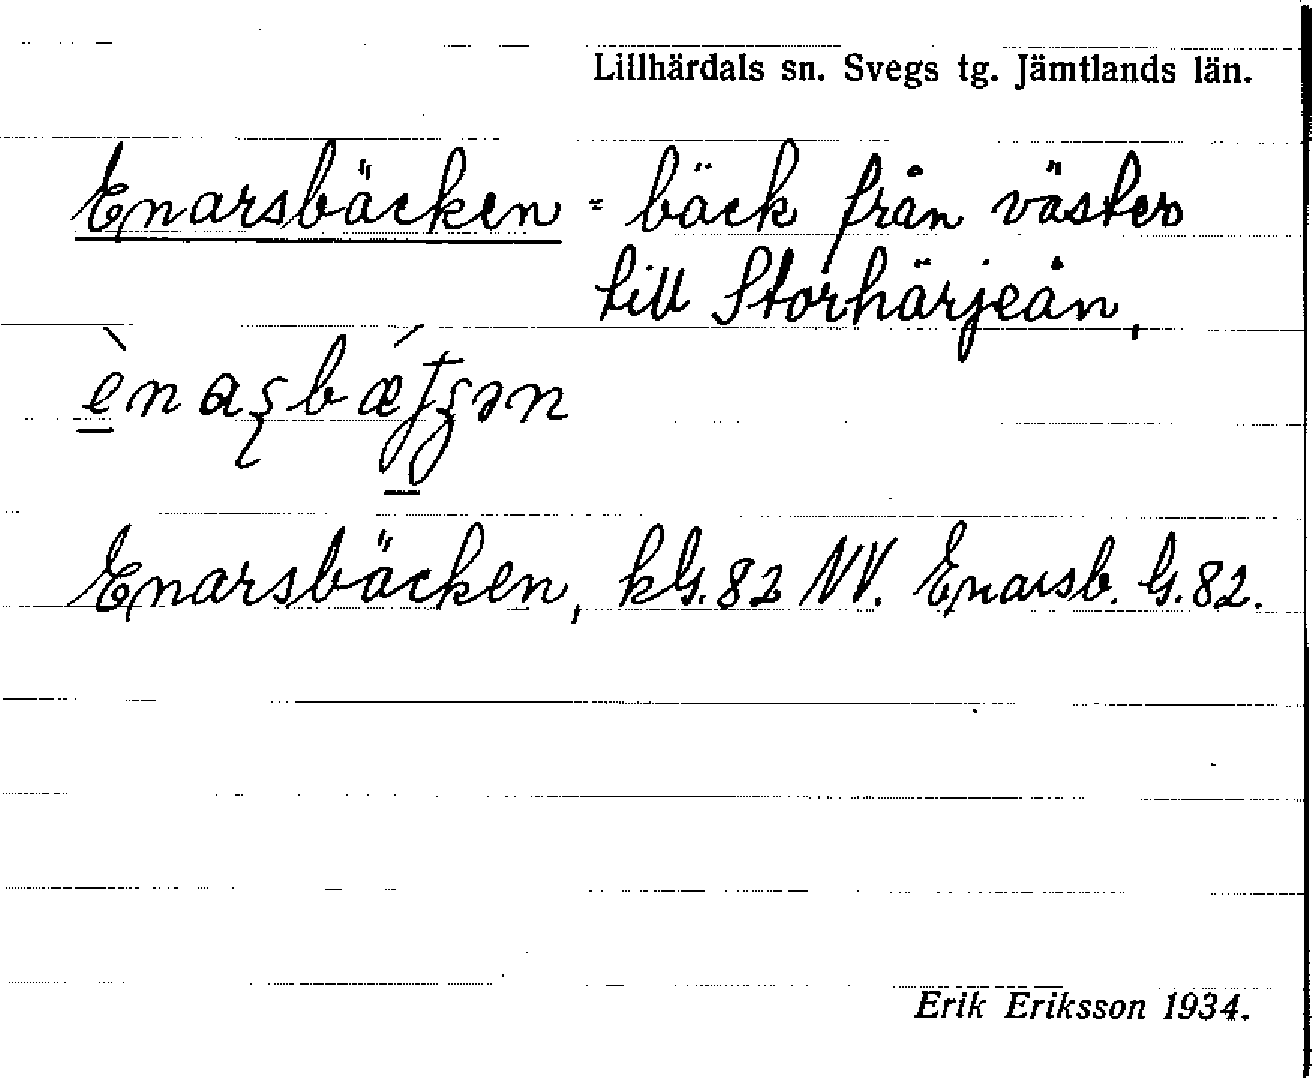 Lillhärdals sn. Svegs tg. Jämtlands län.
Enarsbäcken = bäck från väster
till Storhärjeån,
Enarsbäcken, kG. 82 NV. Enarsb. G. 82.
Erik Eriksson 1934.